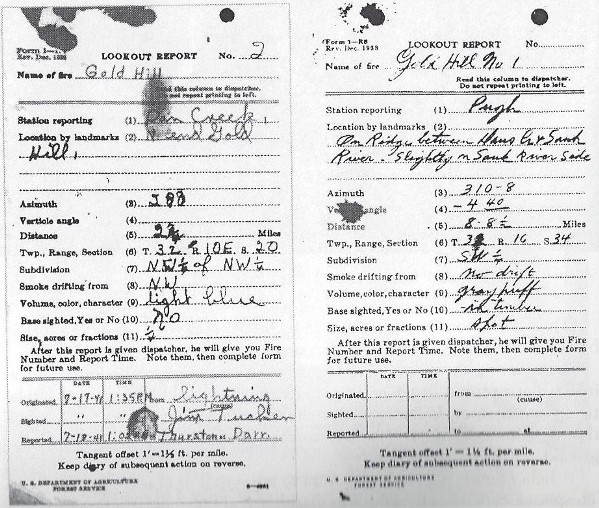 Form 1—R8
Rev. Dec. 1938
LOOKOUT REPORT No. 2
Name of fire Gold Hill
Read this column to dispatcher.
Do not repeat printing to left.
Station reporting (1) Dan Creek
Location by landmarks (2) N. end Gold
Hill.
Azimuth (3)
Verticle angle (4)
Distance (5) Miles
Twp., Range, Section (6) T. 32 R. 10E. S. 20
Subdivision (7) of NW ¼
Smoke drifting from (8) N.W
Volume, color, character (9) light blue
Base sighted, Yes or No (10) No
Size, acres or fractions (11) ¼
After this report is given dispatcher, he will give you Fire
Number and Report Time. Note them, then complete form
for future use.
DATE TIME
Originated 7-17-41 1:35PM from Lightning
(cause)
Sighted " " by Jim Tucker
Reported 7-18-41 to Thurston at Darr.
Tangent offset 1′—1½ ft. per mile.
Keep diary of subsequent action on reverse.
U. S. DEPARTMENT OF AGRICULTURE
FOREST SERVICE
Form 1—R8
Rev. Dec. 1938
LOOKOUT REPORT No.
Name of fire Gold Hill No 1
Read this column to dispatcher.
Do not repeat printing to left.
Station reporting (1) Pugh
Location by landmarks (2)
On Ridge between & Sauk
River - Slightly on Sauk River Side
Azimuth (3) 310-8
angle (4) -4 40
Distance (5) 8-8½ Miles
Twp., Range, Section (6) T. 32 R. 10 S 34
Subdivision (7) SW ¼
Smoke drifting from (8) No drift
Volume, color, character (9) gray puff
Base sighted, Yes or No (10) in timber
Size, acres or fractions (11) spot
After this report is given dispatcher, he will give you Fire
Number and Report Time. Note them, then complete form
for future use.
DATE TIME
Originated from
(cause)
Sighted by
Reported to at
Tangent offset 1′—1½ ft. per mile.
Keep diary of subsequent action on reverse.
U. S. DEPARTMENT OF AGRICULTURE
FOREST SERVICE